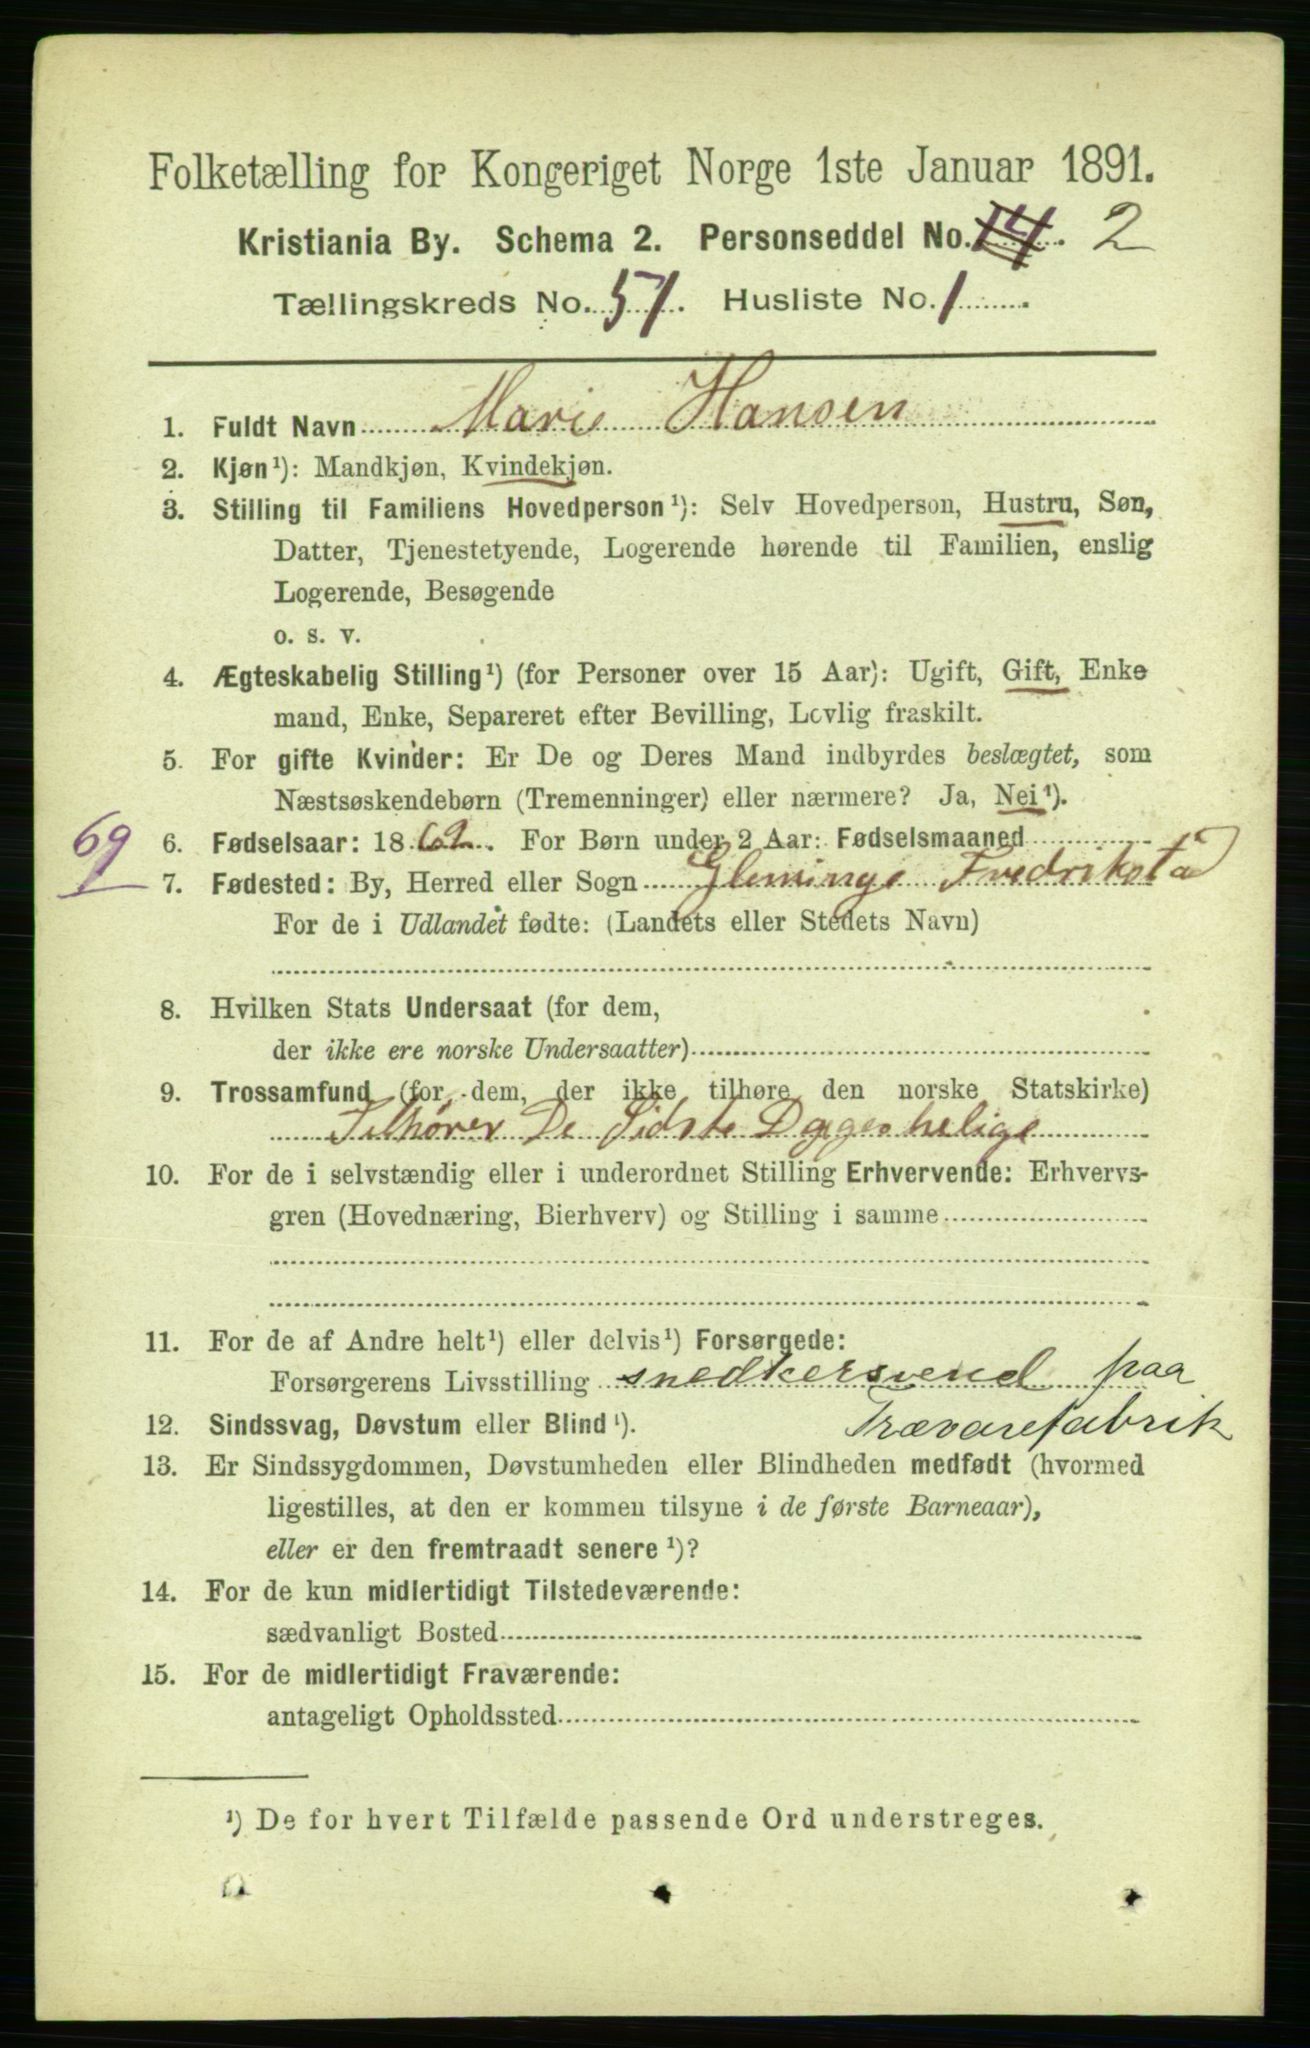 Folketælling for Kongeriget Norge 1ste Januar 1891.
Kristiania By. Schema 2. Personseddel No. 14. 2
Tællingskreds No. 51. Husliste No. 1
1. Fuldt Navn Marie Hansen
2. Kjøn¹): Mandkjøn, Kvindekjøn.
3. Stilling til Familiens Hovedperson¹): Selv Hovedperson, Hustru, Søn,
Datter, Tjenestetyende, Logerende hørende til Familien, enslig
Logerende, Besøgende
o. s. v.
4. Ægteskabelig Stilling¹) (for Personer over 15 Aar): Ugift, Gift, Enke
mand, Enke, Separeret efter Bevilling, Lovlig fraskilt.
5. For gifte Kvinder: Er De og Deres Mand indbyrdes beslægtet, som
Næstsøskendebørn (Tremenninger) eller nærmere? Ja, Nei¹).
69
6. Fødselsaar: 1862. For Børn under 2 Aar: Fødselsmaaned
7. Fødested: By, Herred eller Sogn Fredrikstad
For de i Udlandet fødte: (Landets eller Stedets Navn)
8. Hvilken Stats Undersaat (for dem,
der ikke ere norske Undersaatter)
9. Trossamfund (for dem, der ikke tilhøre den norske Statskirke)
Tilhører De Sidste Dages helige
10. For de i selvstændig eller i underordnet Stilling Erhvervende: Erhvervs-
gren (Hovednæring, Bierhverv) og Stilling i samme
11. For de af Andre helt¹) eller delvis¹) Forsørgede:
Forsørgerens Livsstilling snedkersvend paa
Trævarefabrik
12. Sindssvag, Døvstum eller Blind¹).
13. Er Sindssygdommen, Døvstumheden eller Blindheden medfødt (hvormed
ligestilles, at den er kommen tilsyne i de første Barneaar),
eller er den fremtraadt senere¹)?
14. For de kun midlertidigt Tilstedeværende:
sædvanligt Bosted
15. For de midlertidigt Fraværende:
antageligt Opholdssted
¹) De for hvert Tilfælde passende Ord understreges.